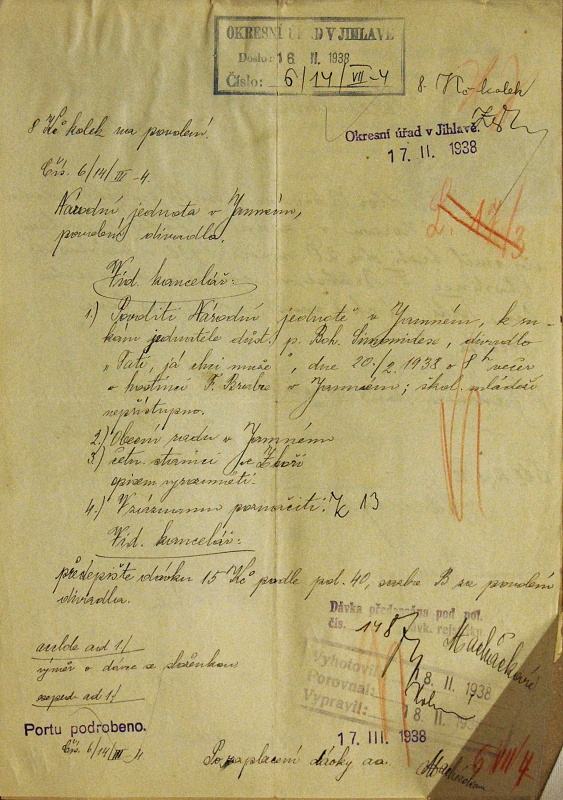 OKRESNÍ ÚŘAD V JIHLAVĚ
Došlo: 16 II. 1938
Číslo: 6/14/VII-4
8 Kč kolek
8 Kč kolek na povolení.
Okresní úřad v Jihlavě.
17. II. 1938
Čís. 6/14/VII-4.
Národní jednota v Jamném,
povolení divadla.
Ž. 17/3
Vid. kancelář:
1.) Povoliti Národní jednotě v Jamném, k ru-
kám jednatele důst. p. Boh. Simonidese, divadlo
„Tati, já chci muže", dne 20./2. 1938 o 8h večer
v hostinci F. Brabce v Jamném; škol. mládeži
nepřístupno.
2.) Obecní radu v Jamném
3.) četn. stanici ve Zhoři
opisem vyrozuměti.
4.) V záznamu poznačiti: 13
VI.
Vid. kancelář:
předepište dávku 15 Kč podle pol. 40, sazba B za povolení
divadla.
Dávka předepsána pod pol.
čís. 148 dávk. rejstříku
Macháčková
ad 1/
výměr o dávce se složenkou
ad 1/
Vyhotovil:
Porovnal: 18 II. 1938
Vypravil: 18 II. 1938
Portu podrobeno.
17. III. 1938
Čís. 6/14/VII-4
Po zaplacení dávky aa.
6 VII/4